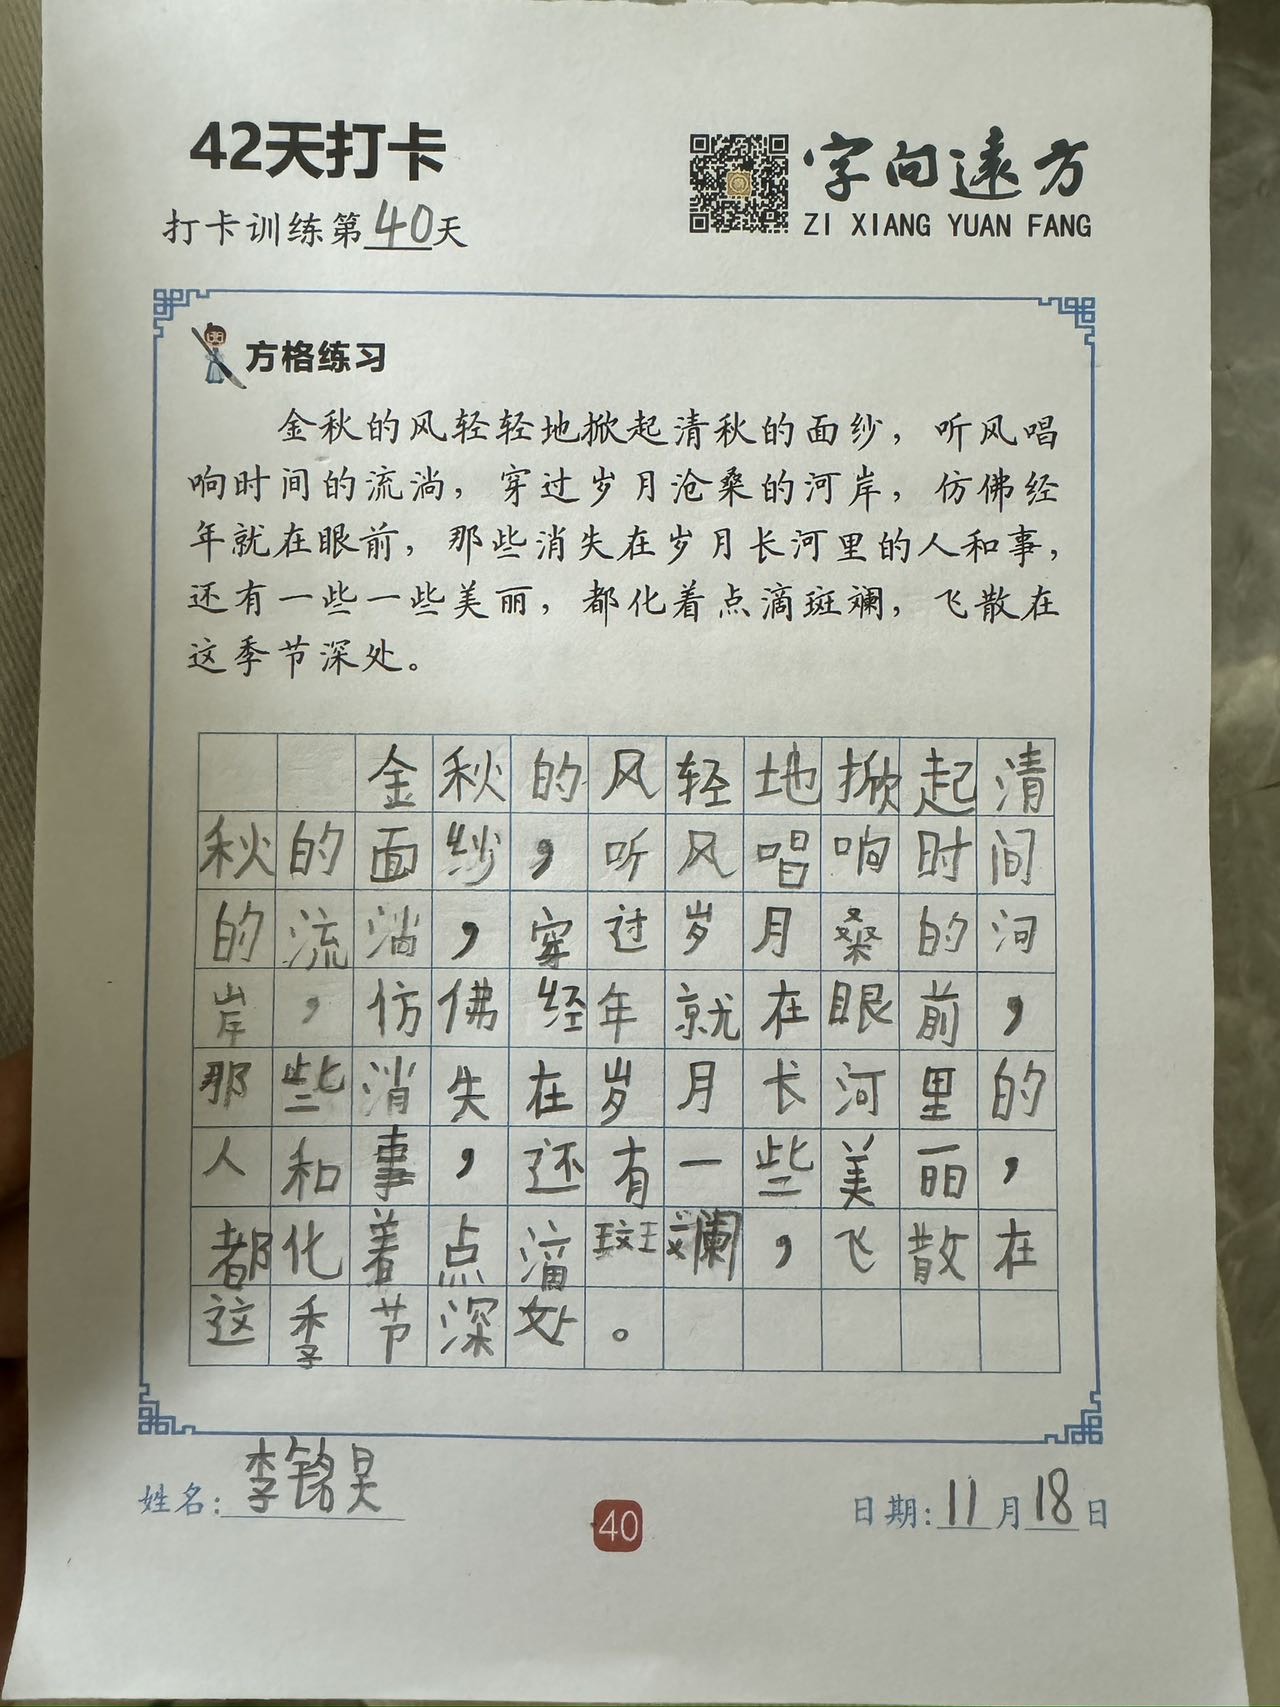 42天打卡
字向遠方
打卡训练第40天
ZI XIANG YUAN FANG
方格练习
金秋的风轻轻地掀起清秋的面纱，听风唱
响时间的流淌，穿过岁月沧桑的河岸，仿佛经
年就在眼前，那些消失在岁月长河里的人和事，
还有一些一些美丽，都化着点滴斑斓，飞散在
这季节深处。
金秋的风轻地掀起清
秋的面纱，听风唱响时间
的流淌，穿过岁月桑的河
岸，仿佛经年就在眼前，
那些消失在岁月长河里的
人和事，还有一些美丽，
都化着点滴斑斓，飞散在
这季节深处。
姓名：李铭昊
40
日期：11月18日